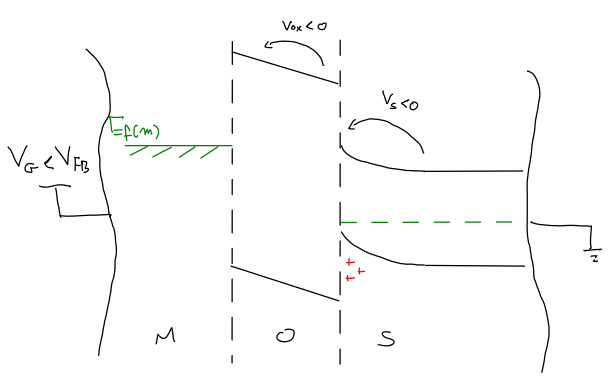 Vox<0
Vs<0
EF(m)
VG<VFB
+
+ +
M O S